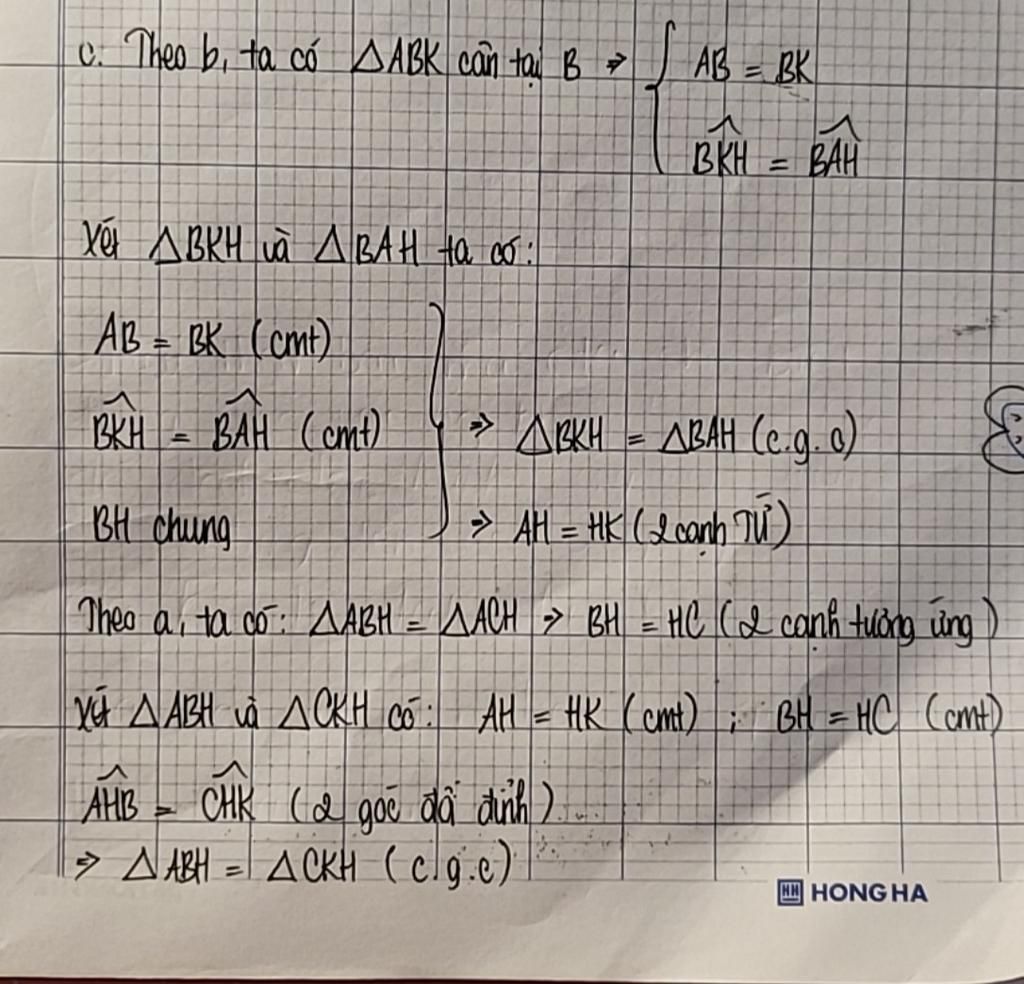 c. Theo b, ta có △ABK cân tại B ⇒ { AB = BK
BKH = BAH
Xét △BKH và △BAH ta có:
AB = BK (cmt)
BKH = BAH (cmt) ⇒ △BKH = △BAH (c.g.c)
BH chung ⇒ AH = HK (2 cạnh TƯ)
Theo a, ta có: △ABH = △ACH ⇒ BH = HC (2 cạnh tương ứng)
Xét △ABH và △CKH có: AH = HK (cmt) ; BH = HC (cmt)
AHB = CHK (2 góc đđ đỉnh)
⇒ △ABH = △CKH (c.g.c)
HH HONG HA